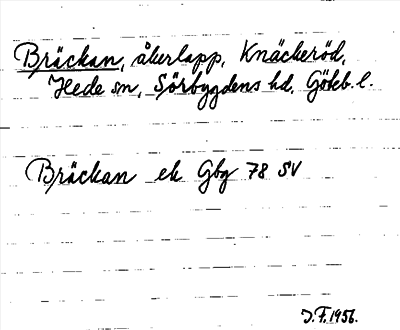 Bräckan, åkerlapp, Knäckeröd,
Hede sn, Sörbygdens hd, Göteb. l.
Bräckan ek Gbg 78 SV
J.F. 1956.